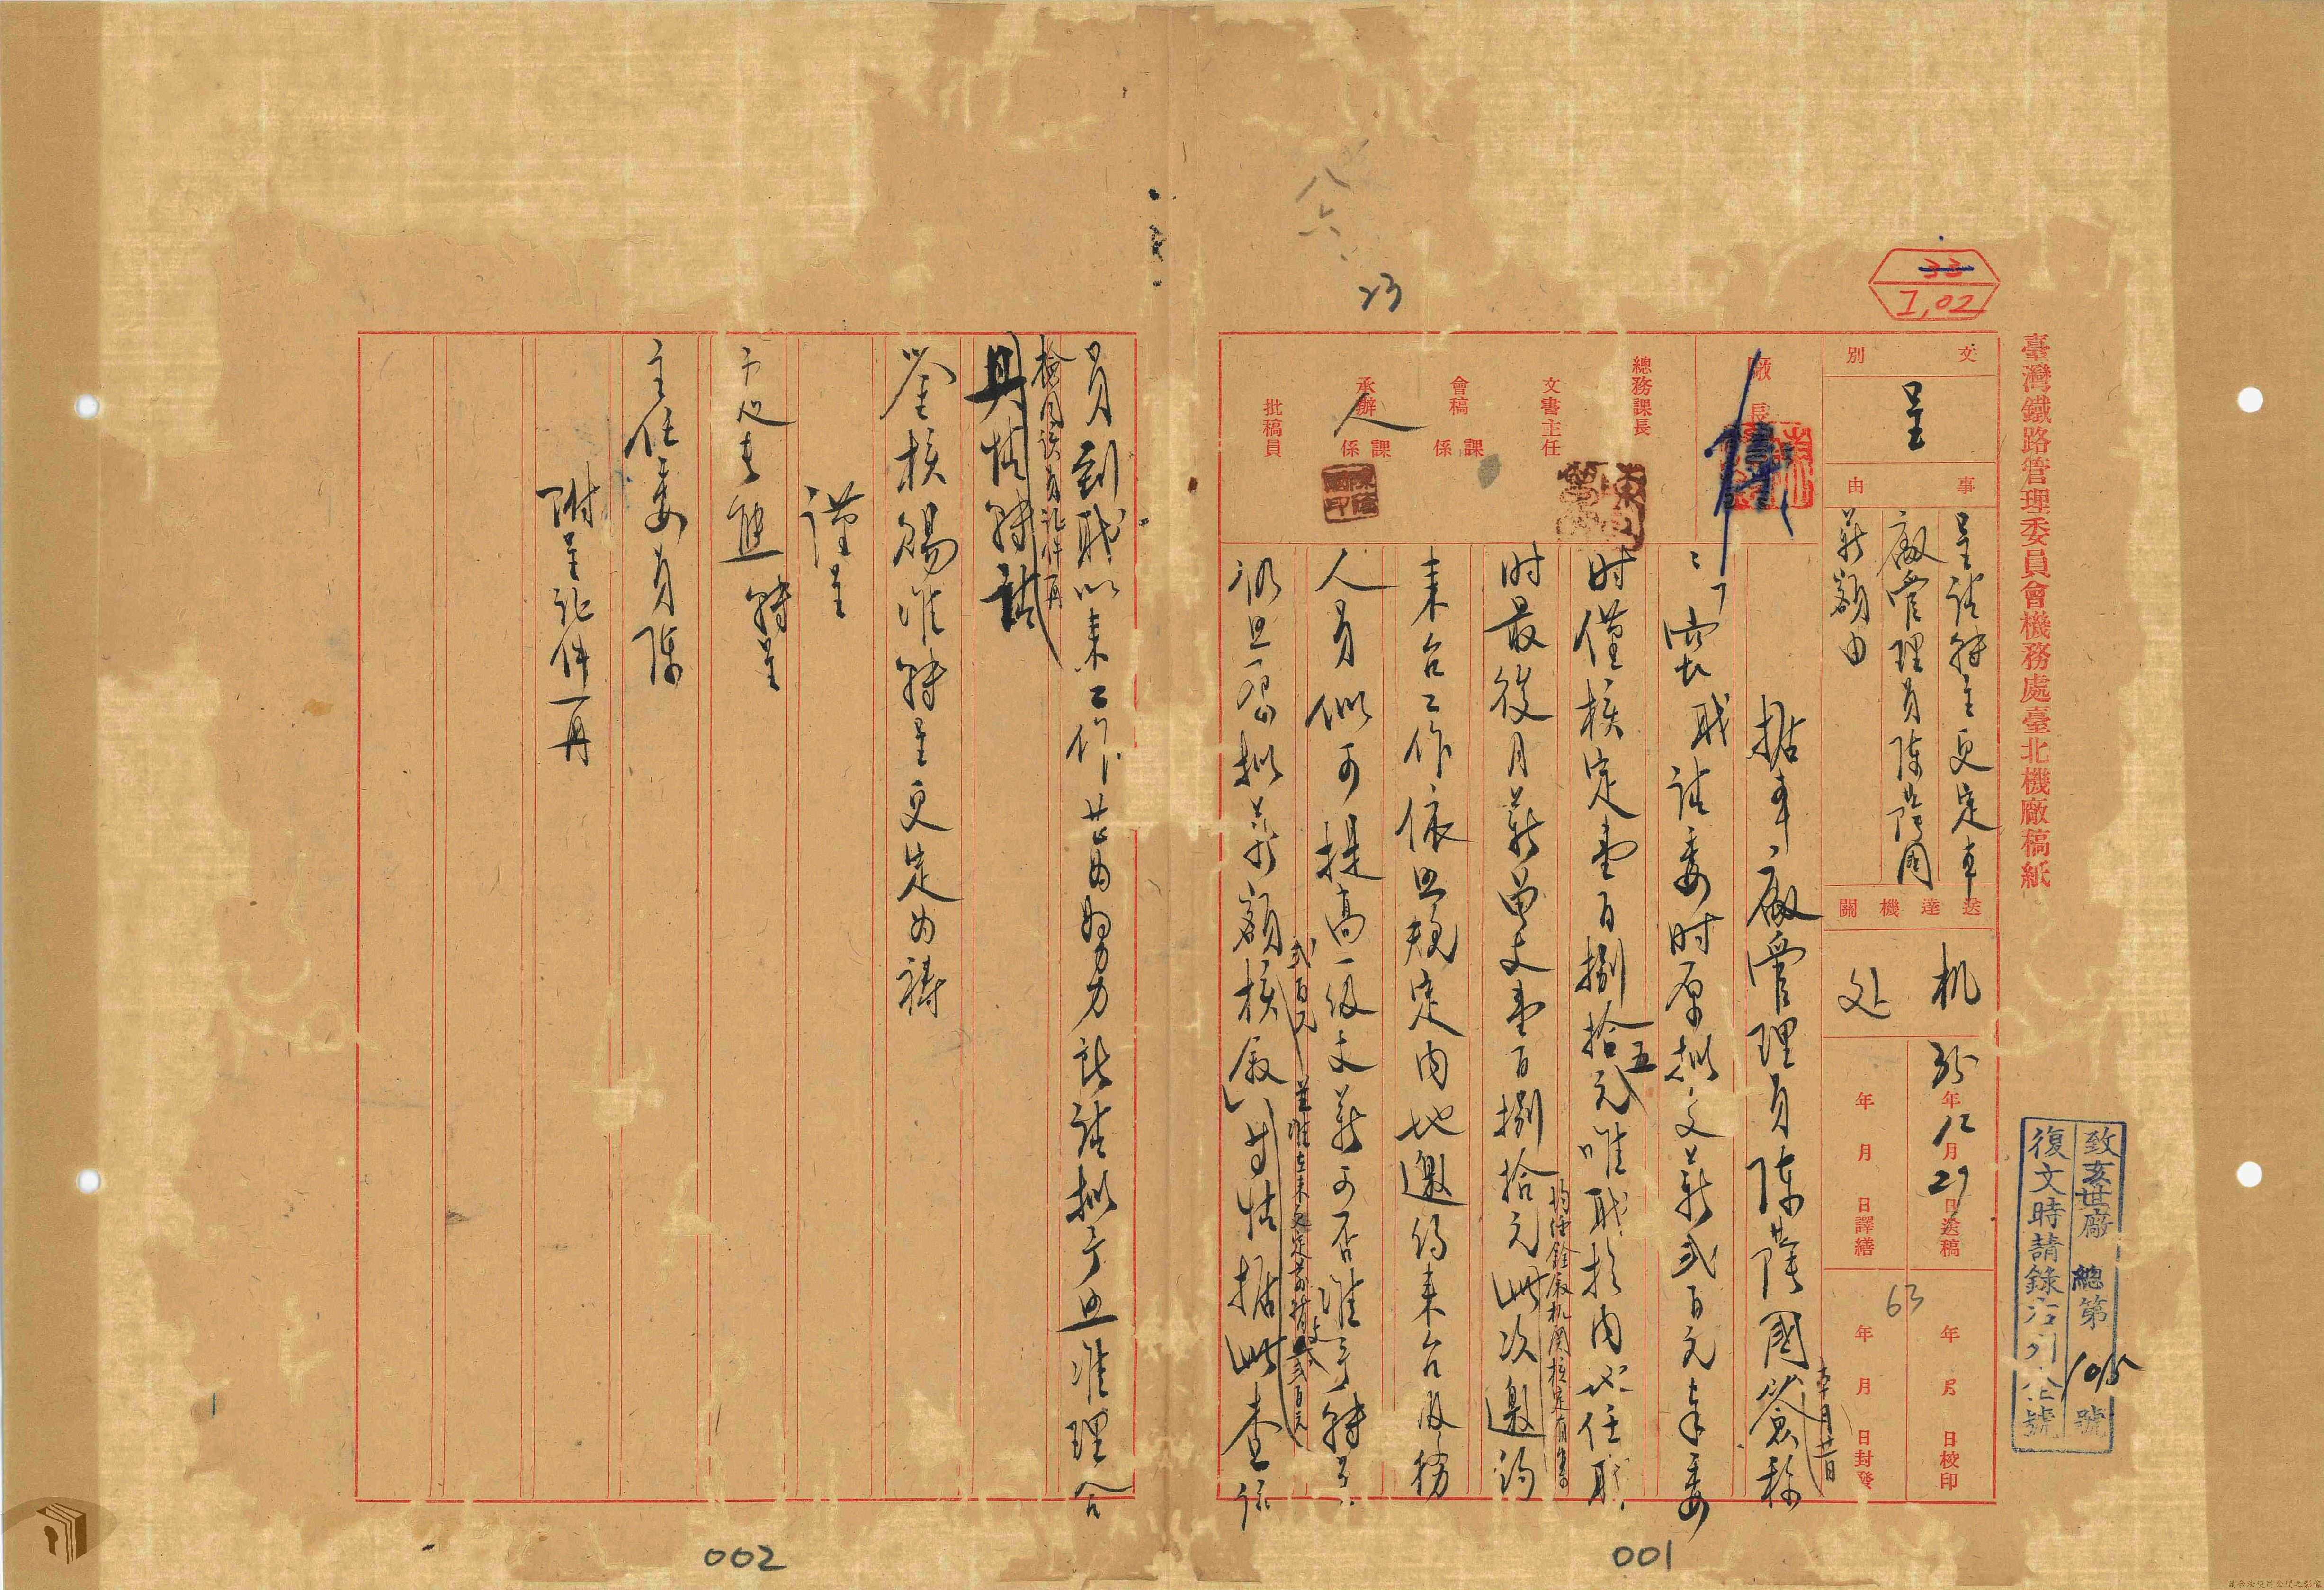 臺灣鐵路管理委員會機務處臺北機廠稿紙
33
I,02
八六
23
文別
呈
事由
呈請轉呈更定本
廠管理員陳蔭國
薪額由
送達機關
机
处
35年12月29日送稿
年月日譯繕
年月日校印
年月日封發
63
致亥世廠總第1015號
復文時請錄右列全號
廠長
總務課長
文書主任
會稿
課係
承辦
課係
人
批稿員
據本廠管理員陳蔭國簽稱
職請委時原擬支薪弍百元奉委
時僅核定壹百捌拾五元唯職於內地任職
均經銓敘机関核定有案
時最後月薪曾支壹百捌拾元此次邀約
來台工作依照規定內地邀約來台服務
人員似可提高一級支薪可否准予轉呈
弍百元
仍照原擬薪額核敘等情據此查該
員到職以來工作甚為努力所請擬予照准理合
檢同該員證件一冊
具情轉請
鉴核賜准轉呈更定為禱
謹呈
處長進轉呈
主任委員陳
附呈証件一冊
001
002